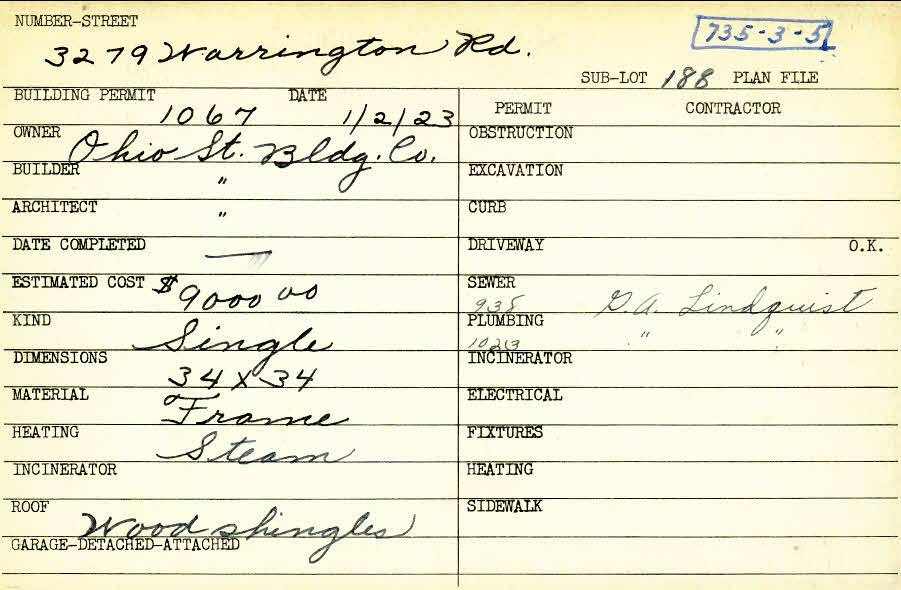 NUMBER-STREET
3279 Warrington Rd.
735-3-5
SUB-LOT 188 PLAN FILE
BUILDING PERMIT 1067 DATE 1/2/23
PERMIT CONTRACTOR
OWNER Ohio St. Bldg. Co.
OBSTRUCTION
BUILDER "
EXCAVATION
ARCHITECT "
CURB
DATE COMPLETED —
DRIVEWAY O.K.
ESTIMATED COST $9000 00
SEWER 938 G.A. Lindquist
KIND Single
PLUMBING 1023 " "
DIMENSIONS 34 x 34
INCINERATOR
MATERIAL Frame
ELECTRICAL
HEATING Steam
FIXTURES
INCINERATOR
HEATING
ROOF Wood shingles
SIDEWALK
GARAGE-DETACHED-ATTACHED